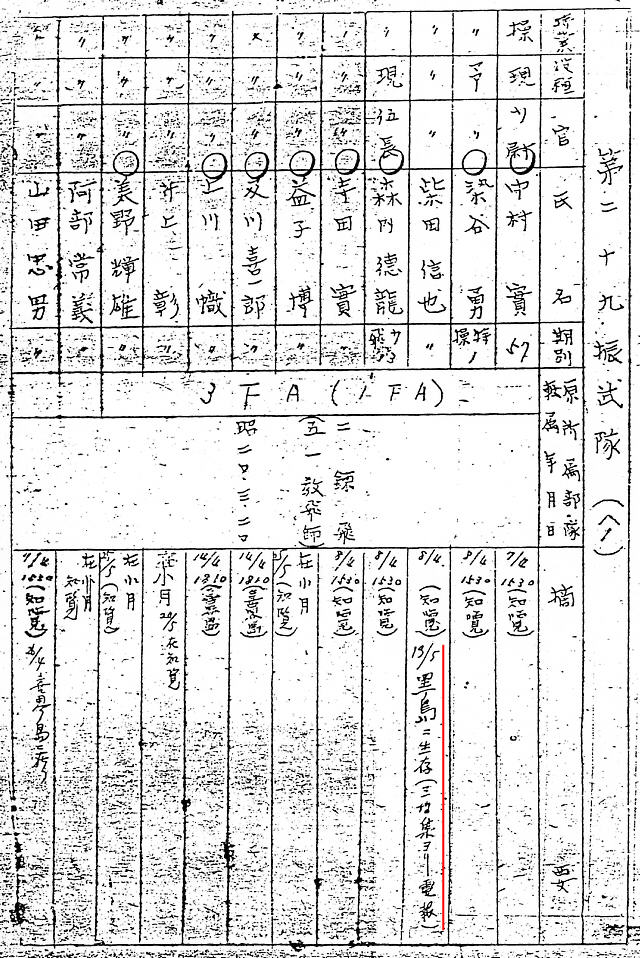 第二十九振武隊
術業 役種 官 氏名 期別 原所属部隊 転属年月日 摘要
操 現 少尉 中村實 57 7/4 1530(知覧)
〃 予 〃 染谷勇 特操1 8/4 1530(知覧)
〃 〃 〃 柴田信也 〃 8/4(知覧) 13/5黒島ニ生存(三角集ヨリ電報)
〃 現 伍長 森内德龍 少飛 8/4 1530(知覧)
〃 〃 〃 寺田實 〃 8/4 1530(知覧)
〃 〃 〃 益子博 〃 在小月 25/5(知覧)
〃 〃 〃 及川喜一郎 〃 14/4 1810(喜界島)
〃 〃 〃 上川幟 〃 14/4 1810(喜界島)
〃 〃 〃 井上彰 〃 在小月 20/5在知覧
〃 〃 〃 美野輝雄 〃 在小月 25/5(知覧)
〃 〃 〃 阿部常義 〃 在小月 知覧
〃 〃 〃 山田忠男 〃 7/4 1530(知覧)
3FA(1FA)
二錬飛
(五一教飛師)
昭二〇.三.二〇